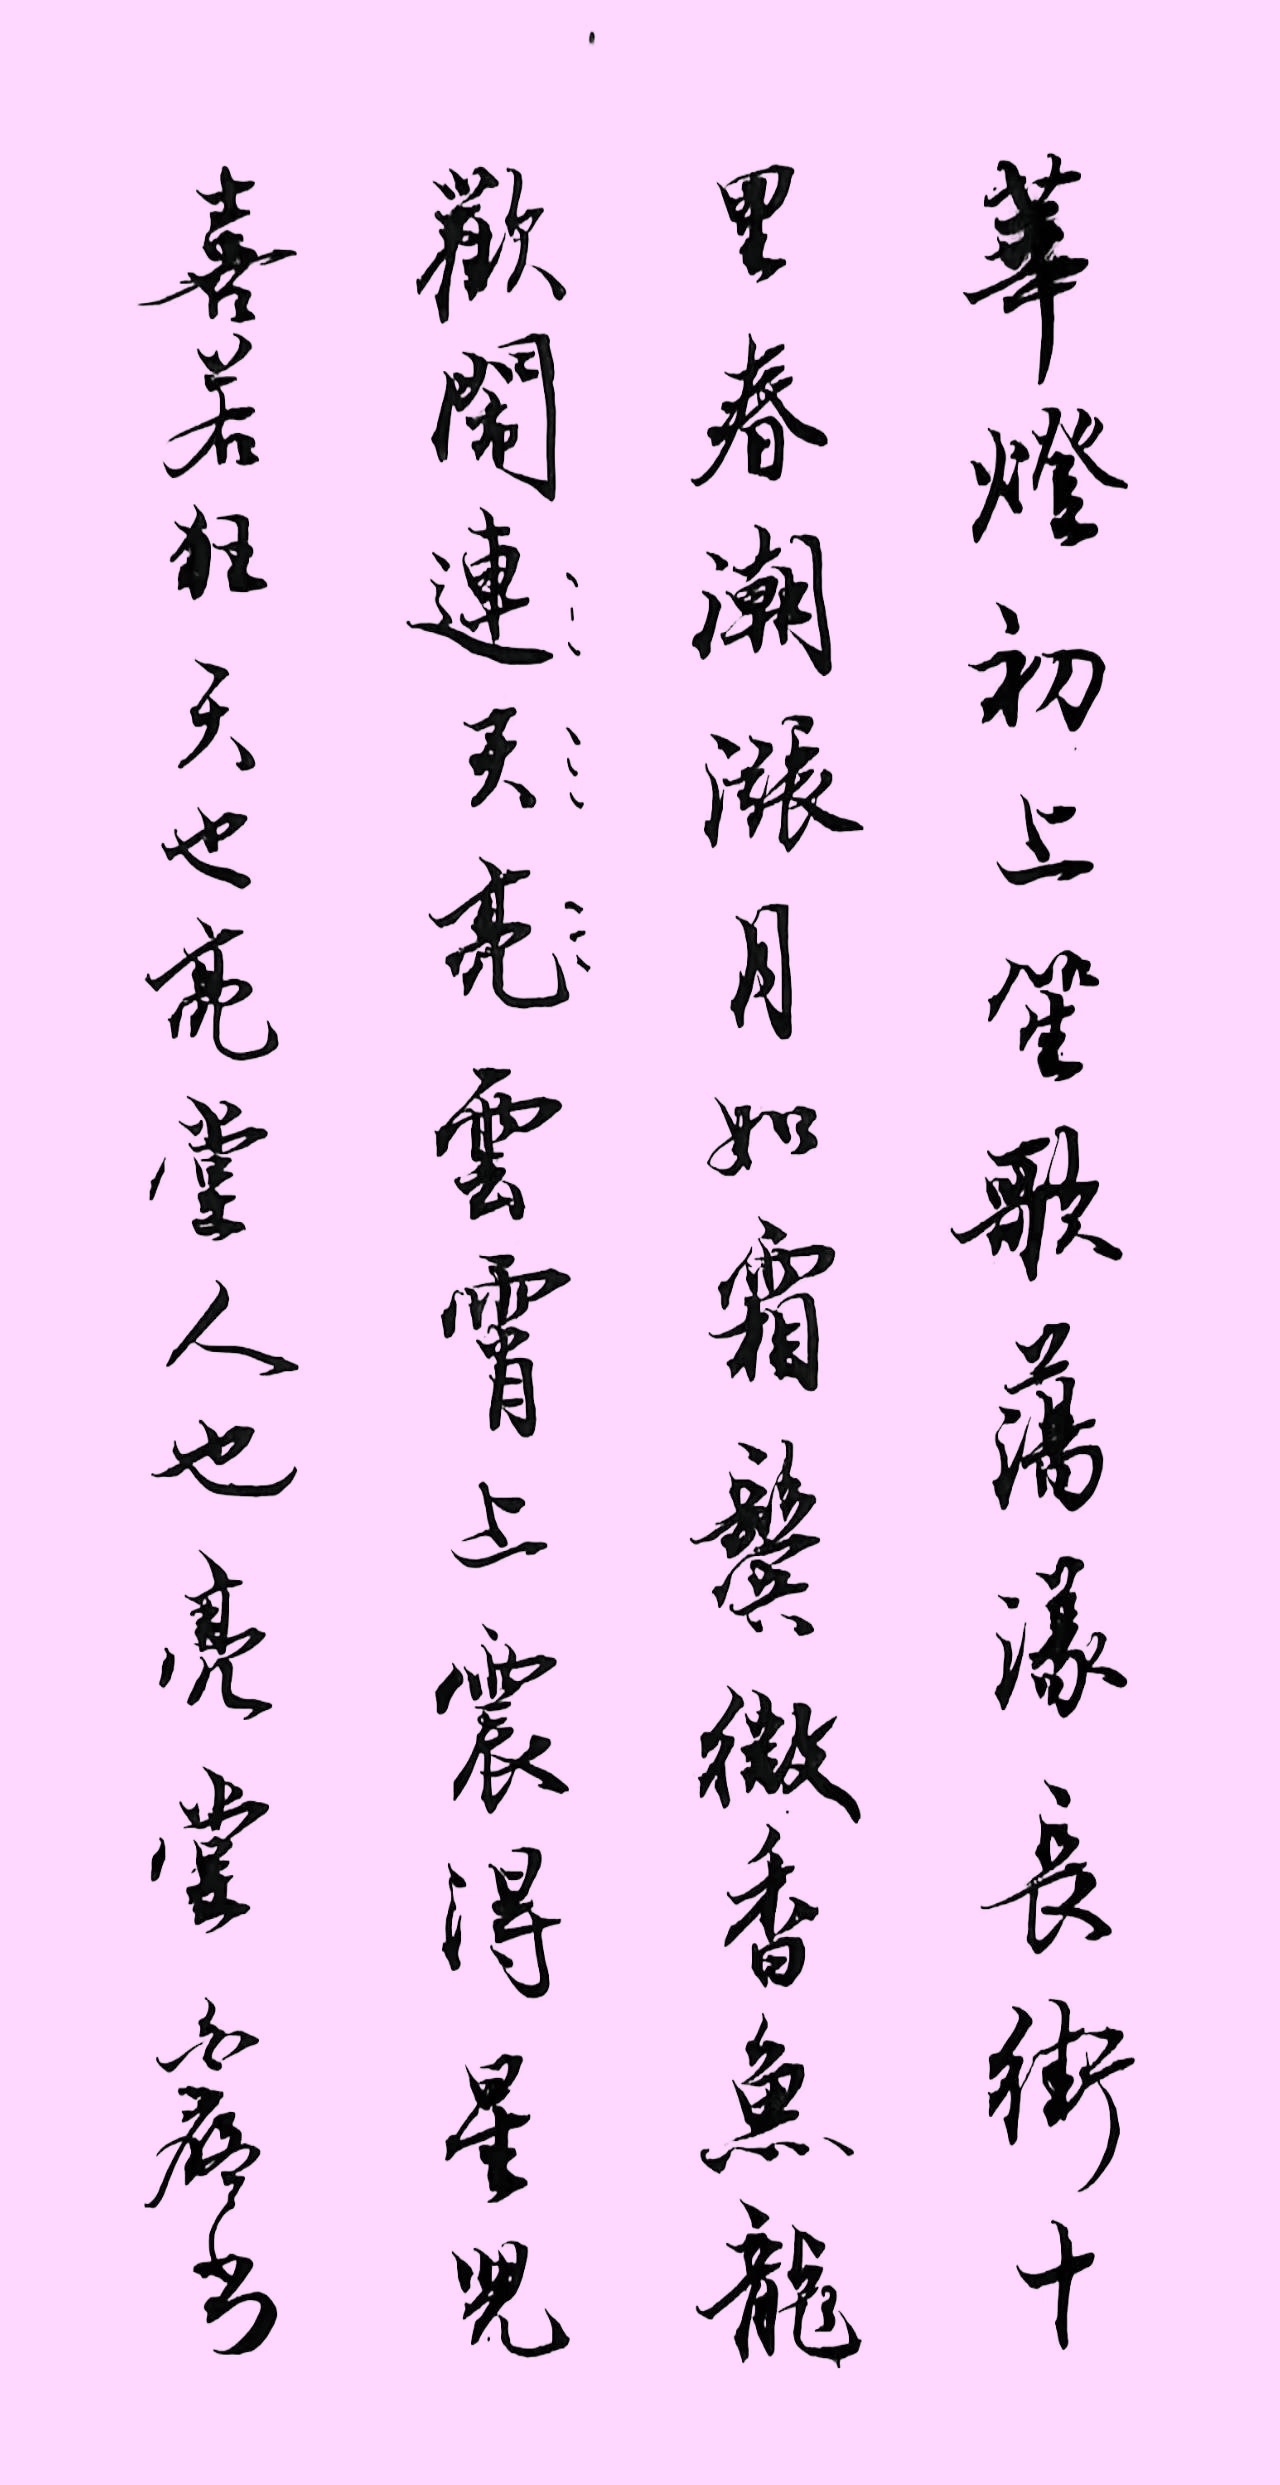 華燈初上笙歌蕩漾長街十
里春潮漲月如霜鬢微香魚龍
歡鬧連〻天〻亮〻雲霄上震得星兒
喜若狂天也亮堂人也亮堂 書